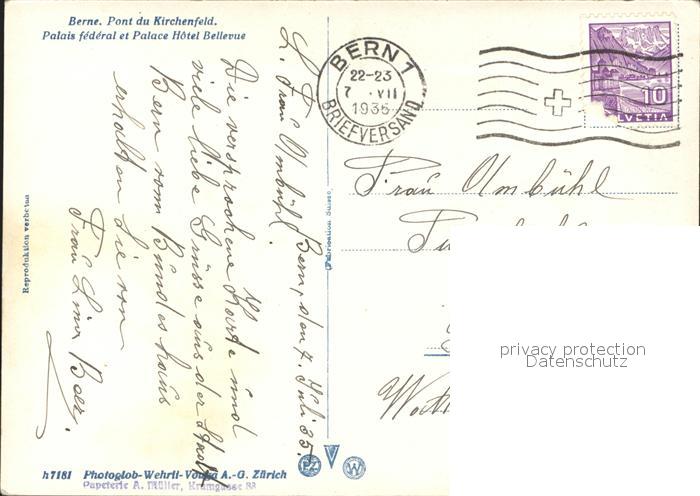 Berne. Pont du Kirchenfeld.
Palais fédéral et Palace Hôtel Bellevue
Bern, den 7. Juli 35.
L. Frau Umbühl.
Die versprochene Karte und
viele liebe Grüsse aus der Stadt
Bern vom Bundeshaus
erhalten Sie von
Frau Lina Baer.
Reproduktion verboten
Fabrication Suisse
BERN 1
22-23
7. VII
1935
BRIEFVERSAND
10
HELVETIA
Frau Umbühl
privacy protection
Datenschutz
h7181 Photoglob-Wehrli-Vouga A.-G. Zürich
Papeterie A. Müller, Kramgasse 88
PZ
W